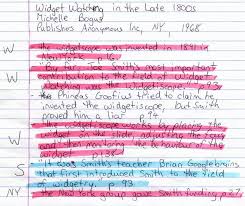 Widget Watching in the Late 1800s
Michelle Bogus
Publishes Anonymous Inc, NY, 1968
W the widgetscope was invented in 1841 in
New York p 6
By far Joe Smith's most important
W contribution to the field of widget
watching was the widgetiscope, p
the Phineas Goofius tried to claim he
invented the widgetiscope, but Smith
proved him a liar p 94.
W the widgetiscope works by placing the
widget on the slide, adjusting the
and then monitoring the behaviour of the
widget p
S It was Smith's teacher Brian Googlebrains
that first introduced Smith to the field
of widgetry, p 93.
NY the New York group gave Smith funding p 27